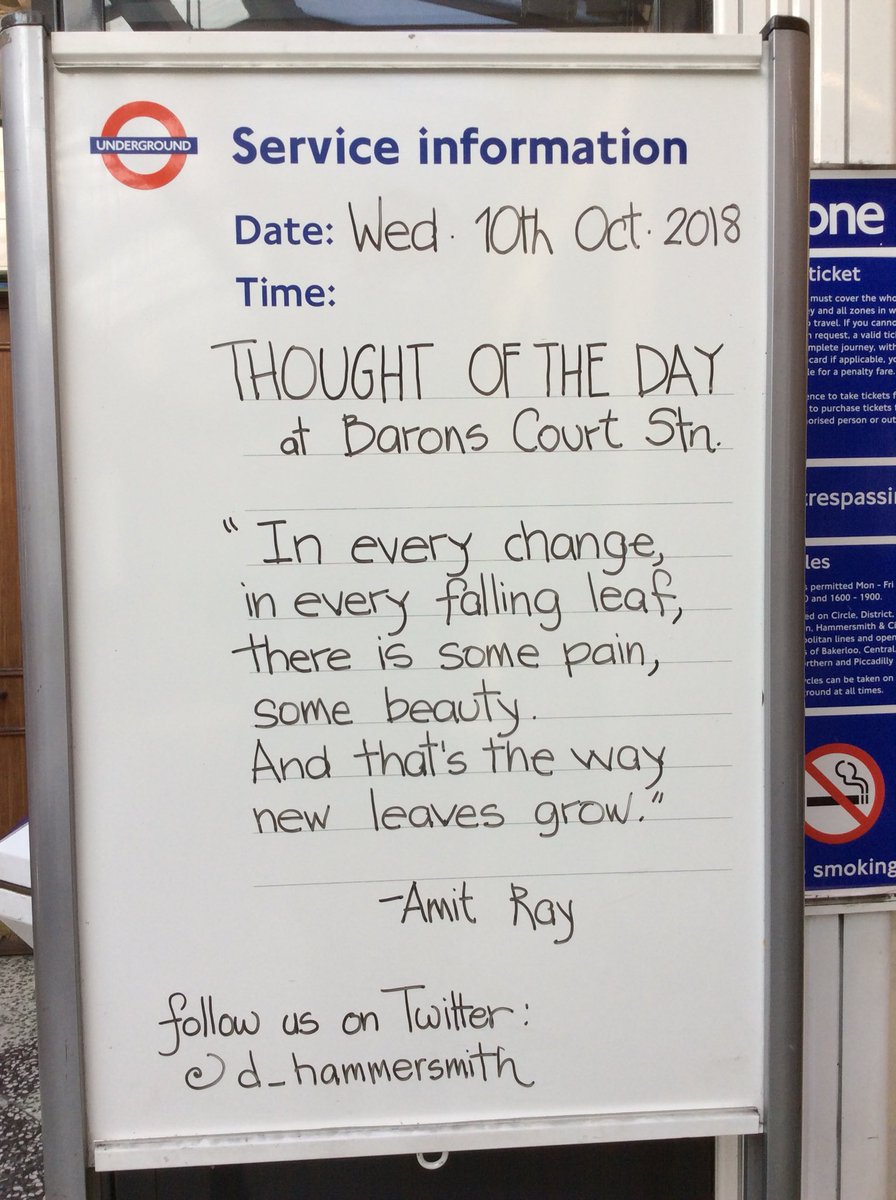 UNDERGROUND
Service information
Date: Wed. 10th Oct. 2018
Time:
THOUGHT OF THE DAY
at Barons Court Stn.
"In every change,
in every falling leaf,
there is some pain,
some beauty.
And that's the way
new leaves grow."
-Amit Ray
follow us on Twitter:
@d_hammersmith
one
ticket
must cover the who
y and all zones in w
travel. If you canno
request, a valid tic
mplete journey, with
card if applicable, yo
le for a penalty fare.
ence to take tickets f
to purchase tickets
orised person or out
trespassi
les
permitted Mon - Fri
0 and 1600 - 1900.
ed on Circle, District,
n, Hammersmith & Ci
politan lines and open
of Bakerloo, Central,
rthern and Piccadilly
cles can be taken on
round at all times.
smoking